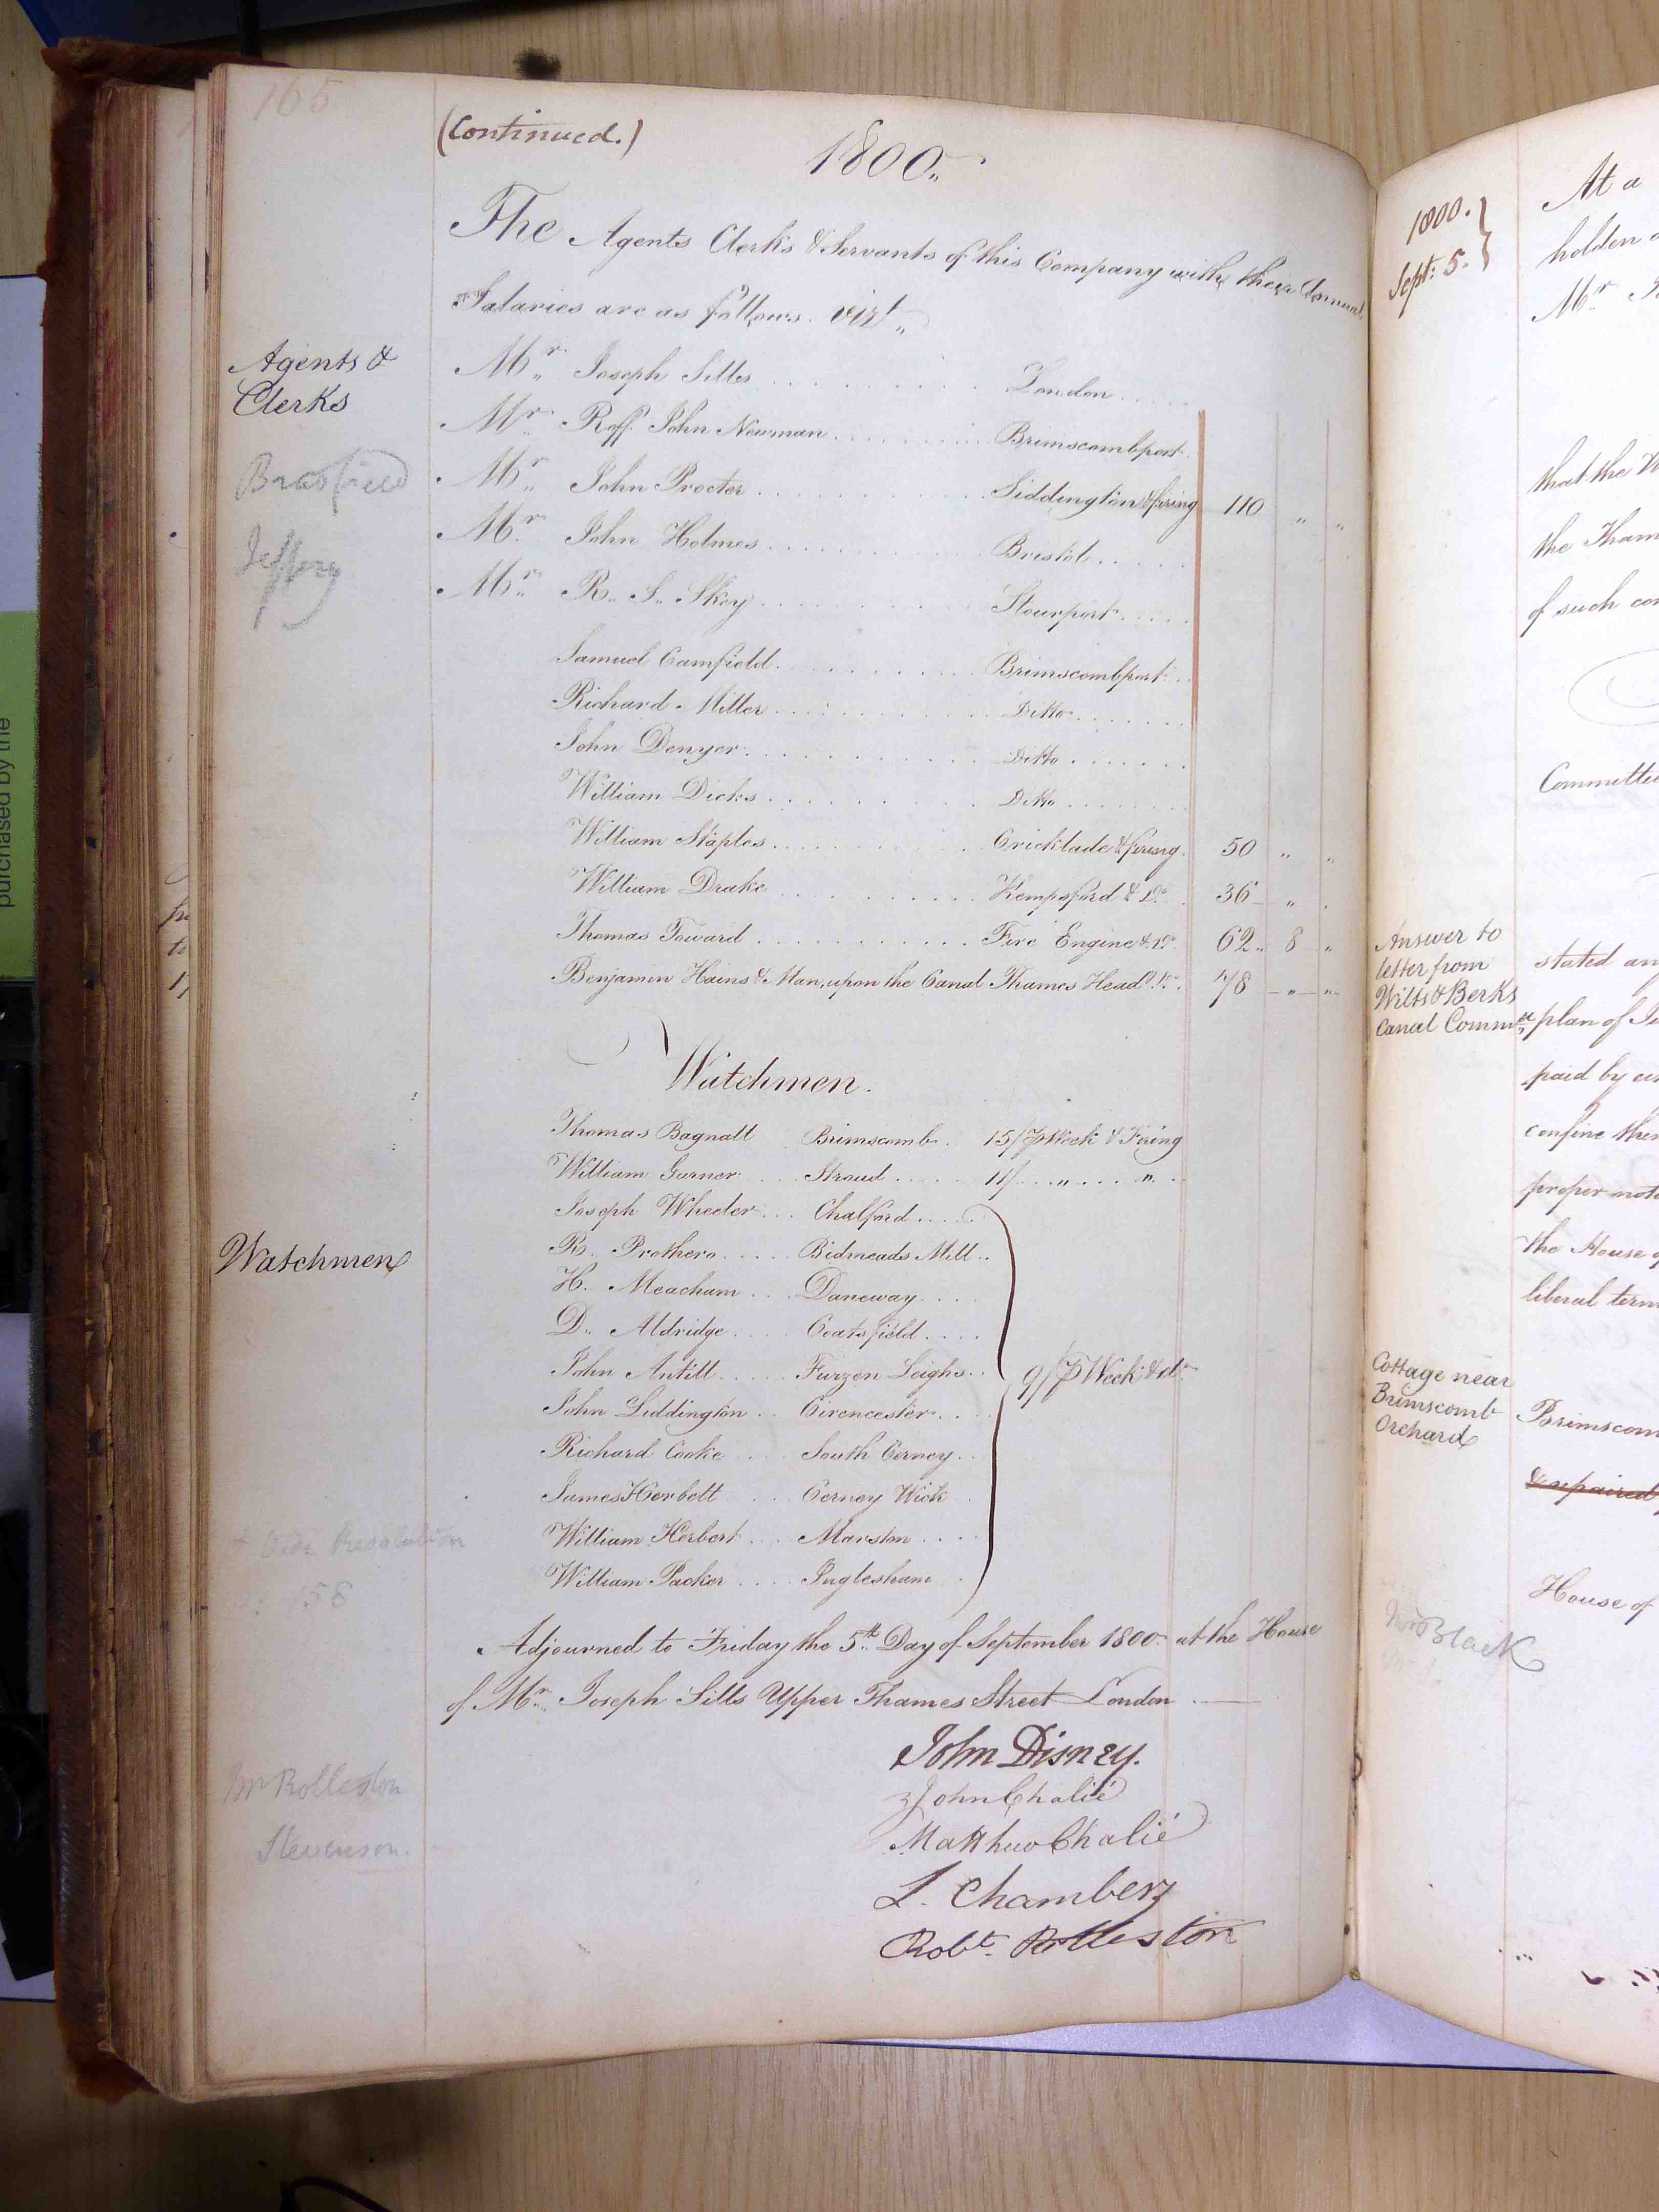 165
(Continued.)
1800.
The Agents Clerks & Servants of this Company with their Annual
Salaries are as follows. vizt.
Agents &
Clerks
Mr. Joseph Sills London
Mr. Roff. John Newman Brimscombport
Mr. John Procter Siddington & firing 110 " "
Mr. John Holmes Bristol
Mr. R. S. Skey Stourport
Bradfield
Jeffery
Samuel Camfield Brimscombport
Richard Miller Ditto
John Denyer Ditto
William Dicks Ditto
William Staples Cricklade & firing 50 " "
William Drake Kempsford & Do. 36 "
Thomas Toward Fire Engine & Do. 62 " 8 "
Benjamin Hains & Man, upon the Canal Thames Head Do. 78 " "
Watchmen.
Thomas Bagnall Brimscomb 15/ P Week & Firing
William Gurner Stroud 11/ " "
Watchmen
Joseph Wheeler Chalford
R. Prothero Bidmeads Mill
H. Meacham Daneway
D. Aldridge Coatsfield
John Antill Furzen Leighs 9/ P Week & do.
John Liddington Cirencester
Richard Cooke South Cerney
James Herbett Cerney Wick
William Herbert Marston
William Packer Inglesham
Vide Resolution
158
Adjourned to Friday the 5th. Day of September 1800. at the House
of Mr. Joseph Sills Upper Thames Street London.
John Disney.
John Chalié
Matthew Chalié
L. Chambers
Robt. Rolleston
Mr Rolleston
Stevenson.
1800.
Sept: 5.
At a
holden
Mr.
that the
the Tham
of such con
Committee
Answer to
letter from
Wilts & Berks
Canal Committee
stated an
plan of
paid by
confine them
proper
the House
liberal term
Cottage near
Brimscomb
Orchard
Brimscom
& repaired
House of
Black
purchased by the